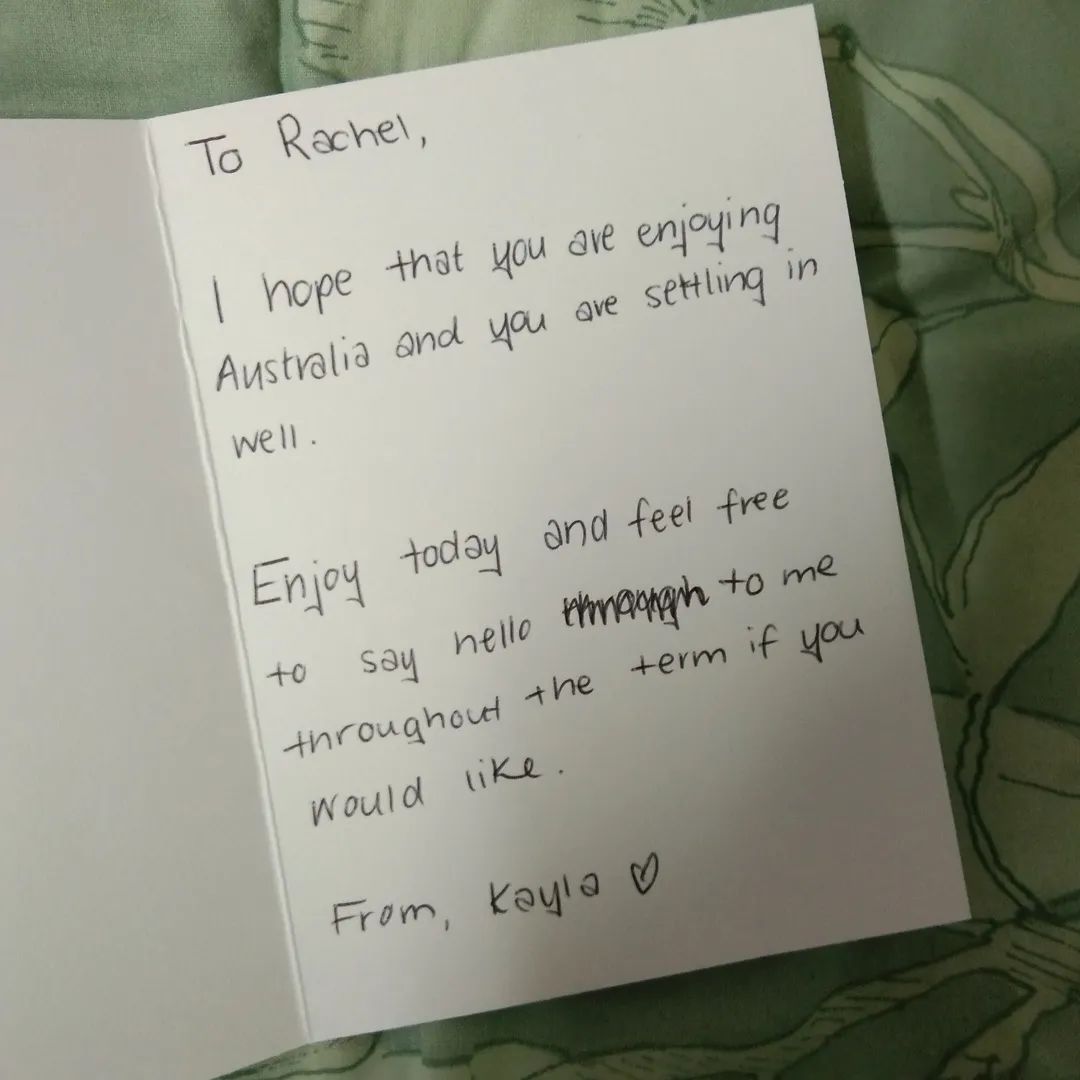 To Rachel,
I hope that you are enjoying
Australia and you are settling in
well.
Enjoy today and feel free
to say hello to me
throughout the term if you
would like.
From, Kayla ♡